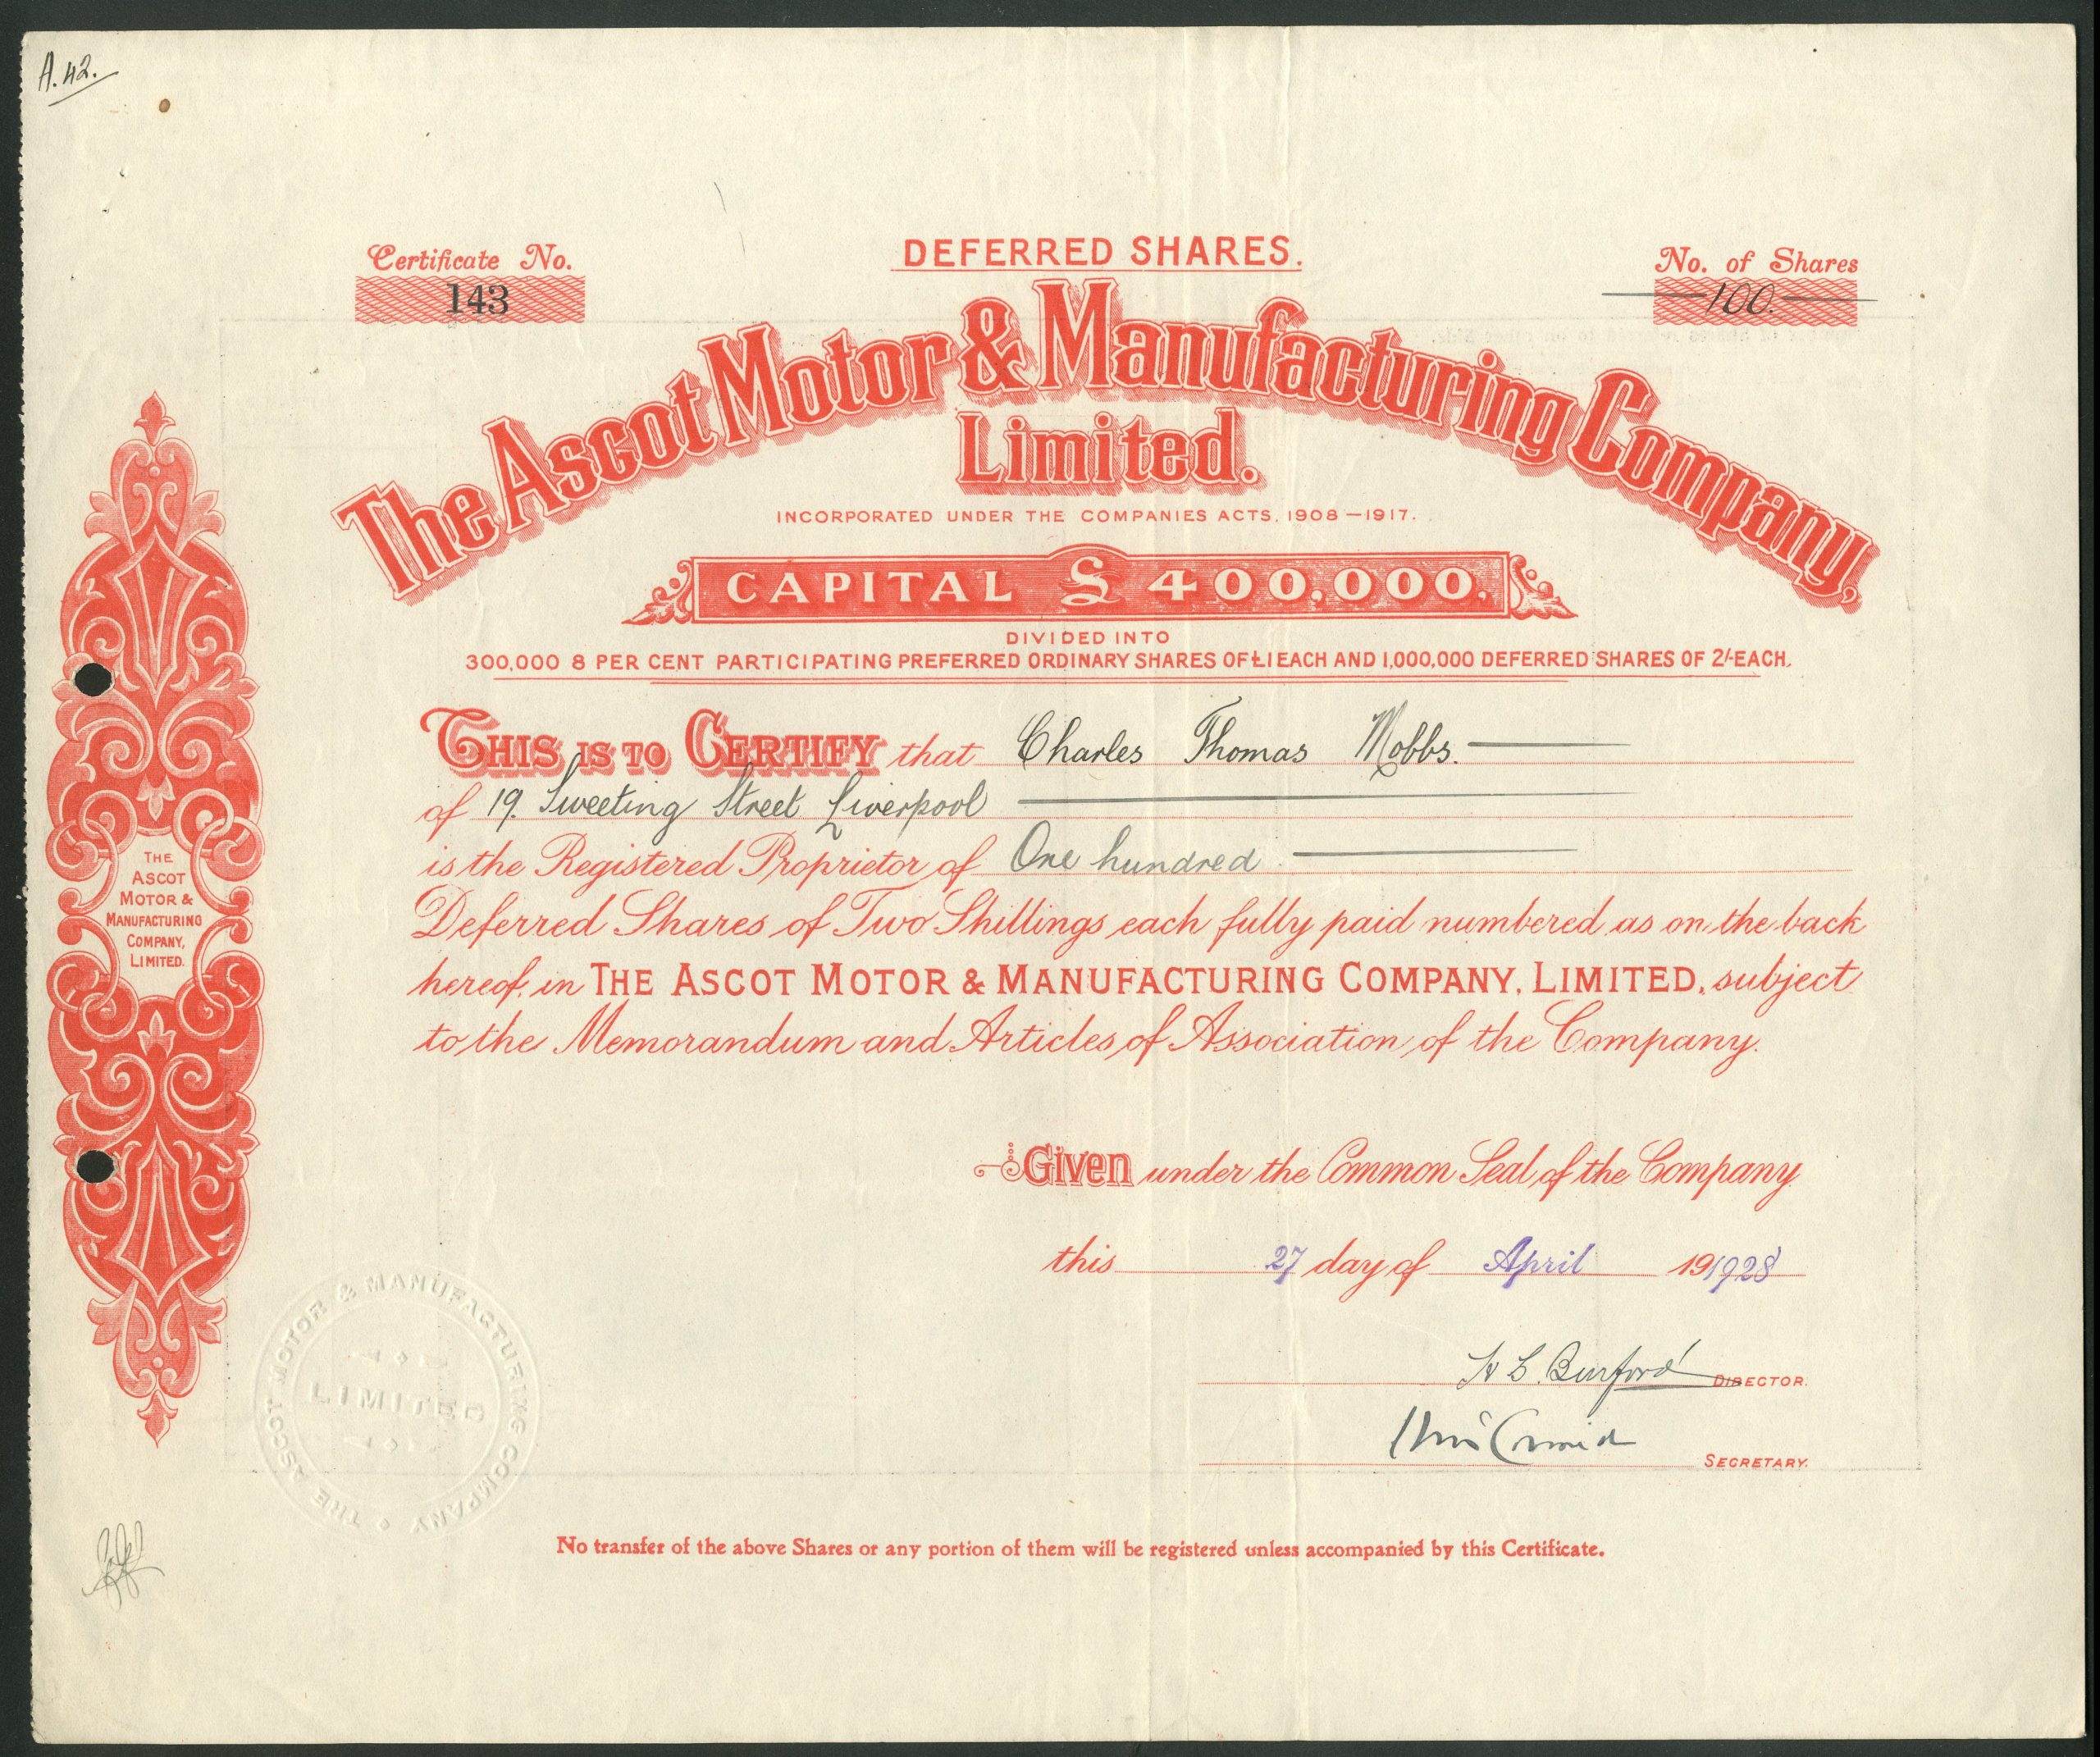 A.42.
DEFERRED SHARES.
Certificate No.
143
No. of Shares
100.
The Ascot Motor & Manufacturing Company,
Limited.
INCORPORATED UNDER THE COMPANIES ACTS, 1908–1917.
CAPITAL £400,000.
DIVIDED INTO
300,000 8 PER CENT PARTICIPATING PREFERRED ORDINARY SHARES OF £1 EACH AND 1,000,000 DEFERRED SHARES OF 2/- EACH.
THIS IS TO CERTIFY that Charles Thomas Mobbs.
of 19. Sweeting Street Liverpool
is the Registered Proprietor of One hundred
Deferred Shares of Two Shillings each fully paid numbered as on the back
hereof, in THE ASCOT MOTOR & MANUFACTURING COMPANY, LIMITED, subject
to the Memorandum and Articles of Association of the Company.
THE
ASCOT
MOTOR &
MANUFACTURING
COMPANY,
LIMITED.
Given under the Common Seal of the Company
this 27 day of April 191928
H B. Burford DIRECTOR.
SECRETARY.
THE ASCOT MOTOR & MANUFACTURING COMPANY
LIMITED
No transfer of the above Shares or any portion of them will be registered unless accompanied by this Certificate.